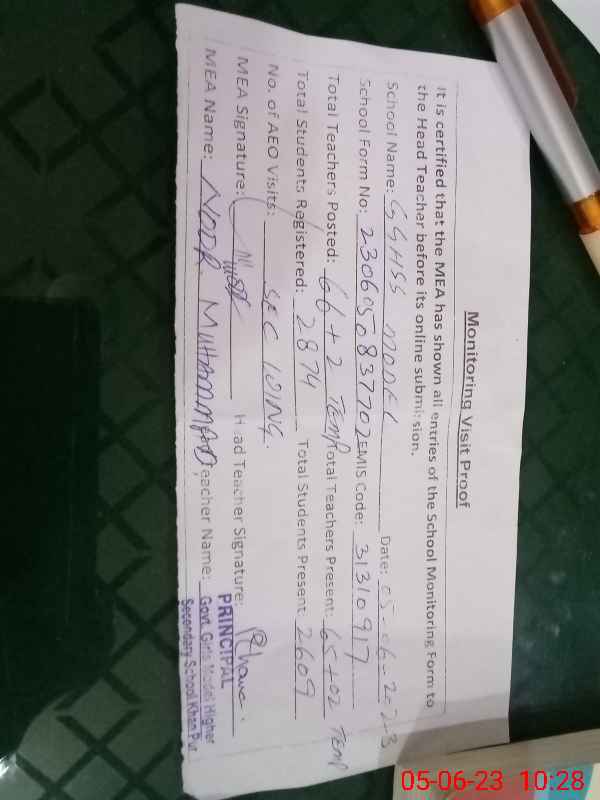 Monitoring Visit Proof
It is certified that the MEA has shown all entries of the School Monitoring Form to
the Head Teacher before its online submission.
School Name: GGHSS MODEL Date: 05-06-2023
School Form No: 2306050837702 EMIS Code: 31310917
Total Teachers Posted: 66+2 TEMP Total Teachers Present: 65+02 TEMP
Total Students Registered: 2874 Total Students Present: 2609
No. of AEO Visits: SEC WING.
MEA Signature: Head Teacher Signature:
MEA Name: MUHAMMAD Teacher Name:
PRINCIPAL
Govt. Girls Model Higher
Secondary School Khan Pur
05-06-23 10:28